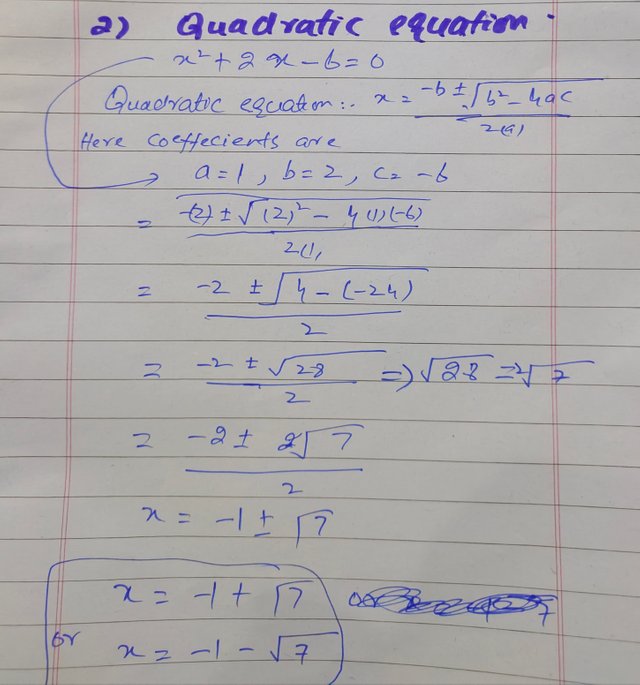 2) Quadratic equation.
x² + 2x - 6 = 0
Quadratic equation:. x = -b ± √b² - 4ac / 2(a)
Here coeffecients are
a = 1, b = 2, c = -6
= -(2) ± √(2)² - 4(1)(-6) / 2(1)
= -2 ± √4 - (-24) / 2
= -2 ± √28 / 2 => √28 = 2√7
= -2 ± 2√7 / 2
x = -1 ± √7
x = -1 + √7 or
or x = -1 - √7